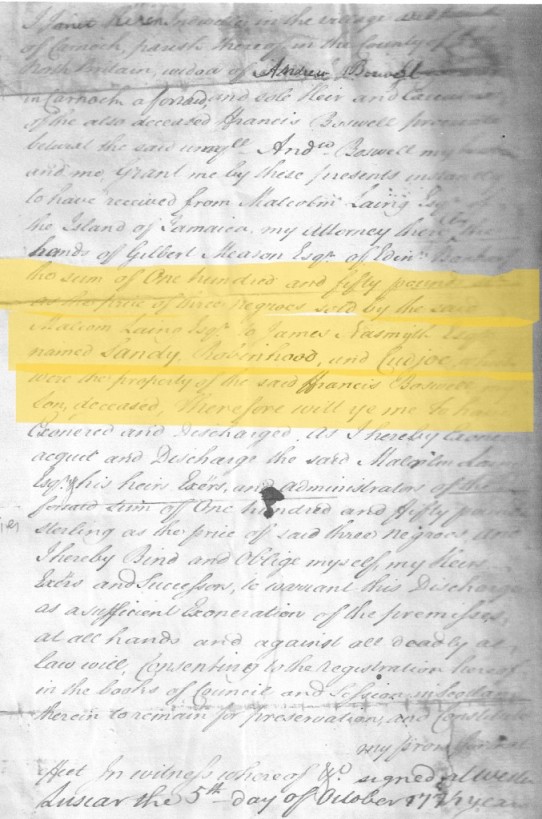 I Janet indweller in the village and
of Carnoch, parish thereof in the County of
North Britain, widow of Andrew Boswel
in Carnoch aforsaid, and sole Heir and
of the also deceased ffrancis Boswell procreate
betwixt the said umqll Andw Boswell my
and me, Grant me by these presents instantly
to have received from Malcolm Laing Esqr of
the Island of Jamaica, my Attorney there, the
hands of Gilbert Meason Esqr of Edinr
the sum of One hundred and fifty pounds
as the price of three negroes sold by the said
Malcom Laing Esqr to James Nasmyth Esqr
named Sandy, Robinhood, and Cudjoe,
were the property of the said ffrancis Boswell my
son, deceased, Therefore will ye me to have
Exonered and Discharged As I hereby Exoner
acquit and Discharge the said Malcolm Laing
Esqr his heirs Exērs, and administrators of the
forsaid sum of One hundred and fifty pounds
sterling as the price of said three negroes, and
I hereby Bind and Oblige myself, my Heirs
Exērs and Successors, to warrant this Discharge
as a sufficient Exoneration of the premisses,
at all hands and against all deadly as
law will, Consenting to the Registration hereof
in the books of Council and Session, in Scotland
therein to remain for preservation, and Constitute
my prors for that
effect In witness whereof &c signed at Wester
Luscar the 5th day of October 177 years